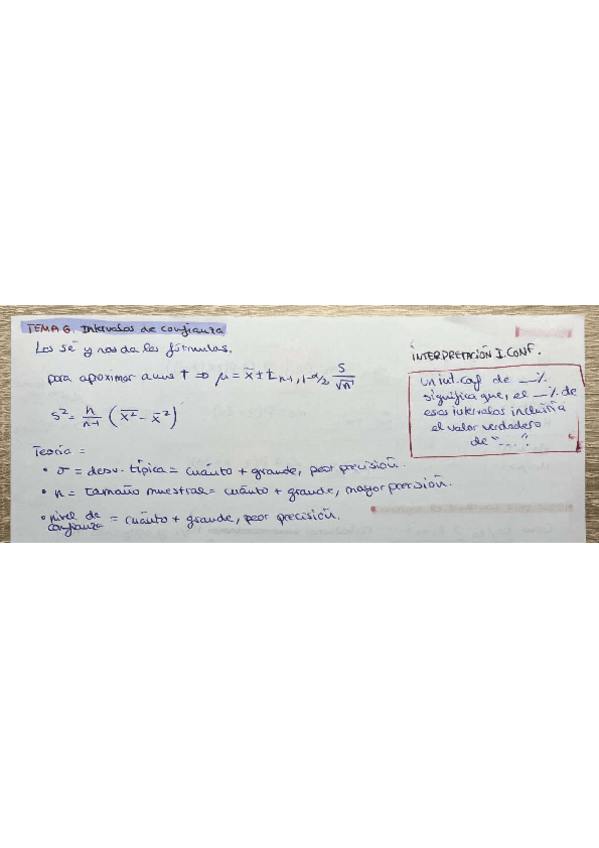 TEMA 6. Intervalos de confianza
Los sé y nos da las fórmulas.
para aproximar a una t ⇒ μ = x̄ ± t n-1, 1-α/2 S/√n
S² = n/n-1 (x̄² - x̄²)
Teoría =
• σ = desv. típica = cuánto + grande, peor precisión.
• n = tamaño muestral = cuánto + grande, mayor precisión.
• nivel de confianza = cuánto + grande, peor precisión.
INTERPRETACIÓN I. CONF.
Un int. conf de __%
significa que, el __% de
esos intervalos incluiría
el valor verdadero
de "...".